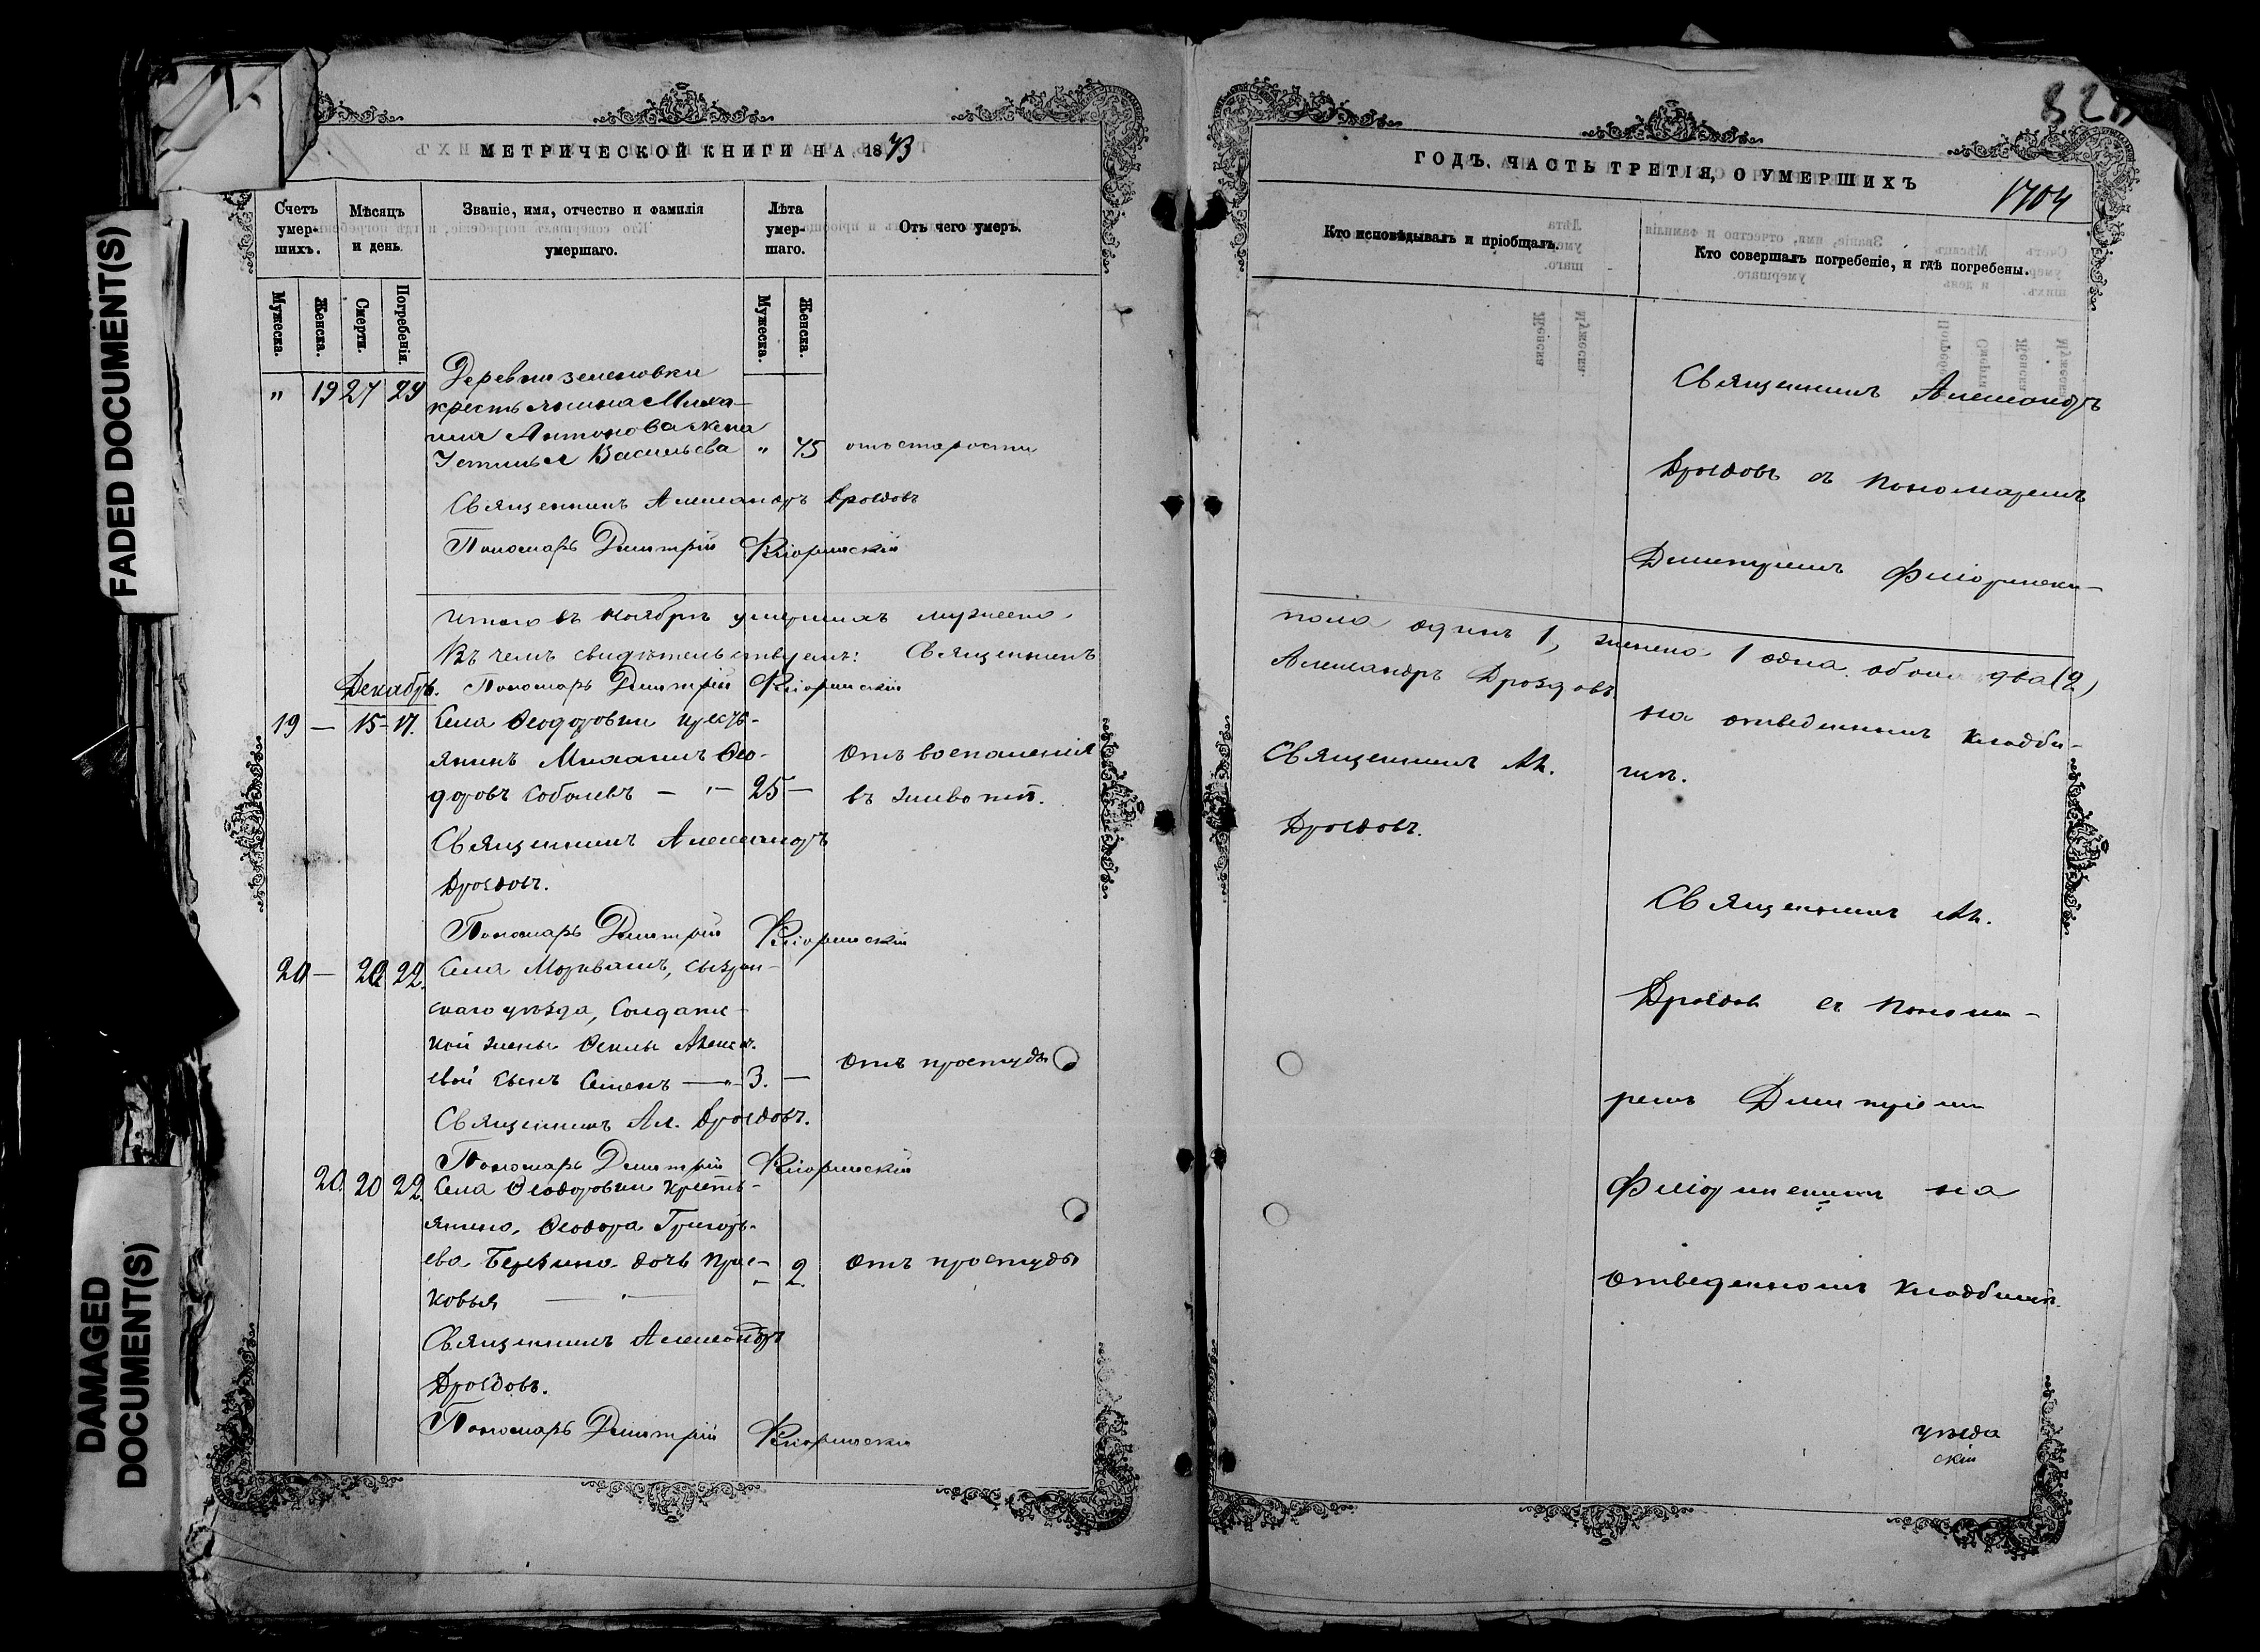 FADED DOCUMENT(S)
DAMAGED
DOCUMENT(S)
МЕТРИЧЕСКОЙ КНИГИ НА 1873
Счетъ умер-шихъ.
Мѣсяцъ и день.
Званіе, имя, отчество и фамилія умершаго.
Лѣта умер-шаго.
Отъ чего умеръ.
Мужеска.
Женска.
Смерти.
Погребенія.
Мужеска.
Женска.
Деревни
" 19 27 29 крестьянина Миха-
ила Антонова жена
Устинья Васильева " 75 отъ старости
Священникъ Александръ Дроздовъ
Пономарь Димитрій
Итого въ ноябрѣ умершихъ мужеска
Въ чемъ свидѣтельствуемъ: Священникъ
Декабрь. Пономарь Димитрій
19 — 15 - 17. Села Ѳеодоровки кресть-
янинъ Михаилъ Ѳео- Отъ воспаленія
доровъ Соболевъ — 25 — въ животѣ.
Священникъ Александръ
Дроздовъ.
Пономарь Димитрій
20 — 20 22. Села Морквашъ, Сызран-
скаго уѣзда, Солдатс-
кой жены
евой сынъ Семенъ — 3. — Отъ простуды
Священникъ Ал. Дроздовъ.
Пономарь Димитрій
20. 20 22. Села Ѳеодоровки кресть-
янина Ѳеодора Григорь-
ева дочь Прас-
ковья — 2 Отъ простуды
Священникъ Александръ
Дроздовъ.
Пономарь Димитрій
ГОДЪ. ЧАСТЬ ТРЕТІЯ, О УМЕРШИХЪ
1704
Кто исповѣдывалъ и пріобщалъ.
Кто совершалъ погребеніе, и гдѣ погребены.
Священникъ Александръ
Дроздовъ съ пономаремъ
Димитріемъ
пола одинъ 1, женска 1 одна. обоего два (2)
Александръ Дроздовъ.
на отведенномъ кладби-
щѣ.
Священникъ Ал.
Дроздовъ.
Священникъ Ал.
Дроздовъ съ понома-
ремъ Димитріемъ
на
отведенномъ кладбищѣ.
уѣзда
скій